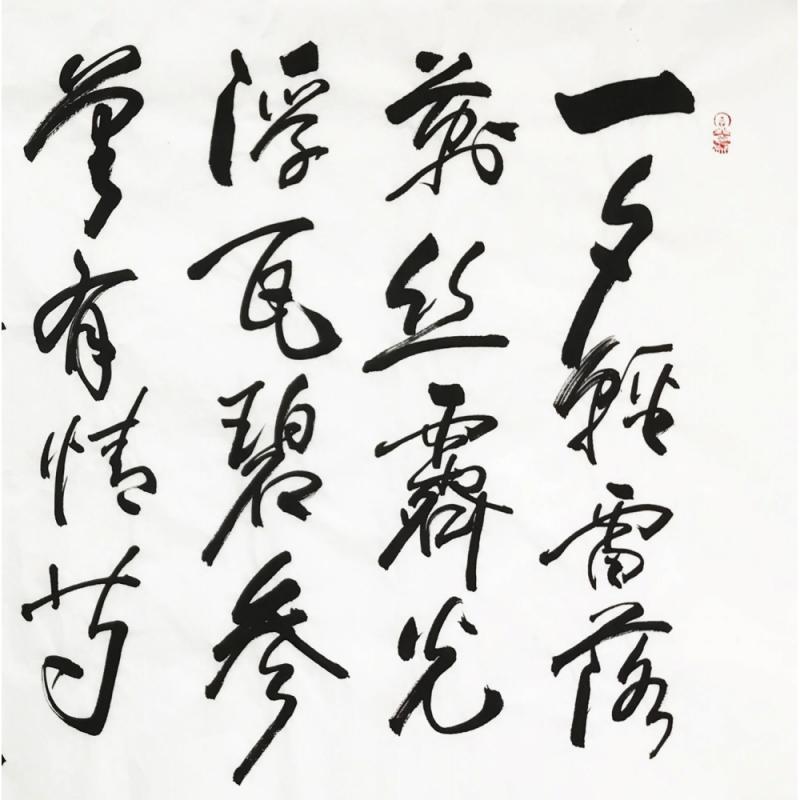 一夕輕雷落
萬丝霽光
浮瓦碧参
差有情芍